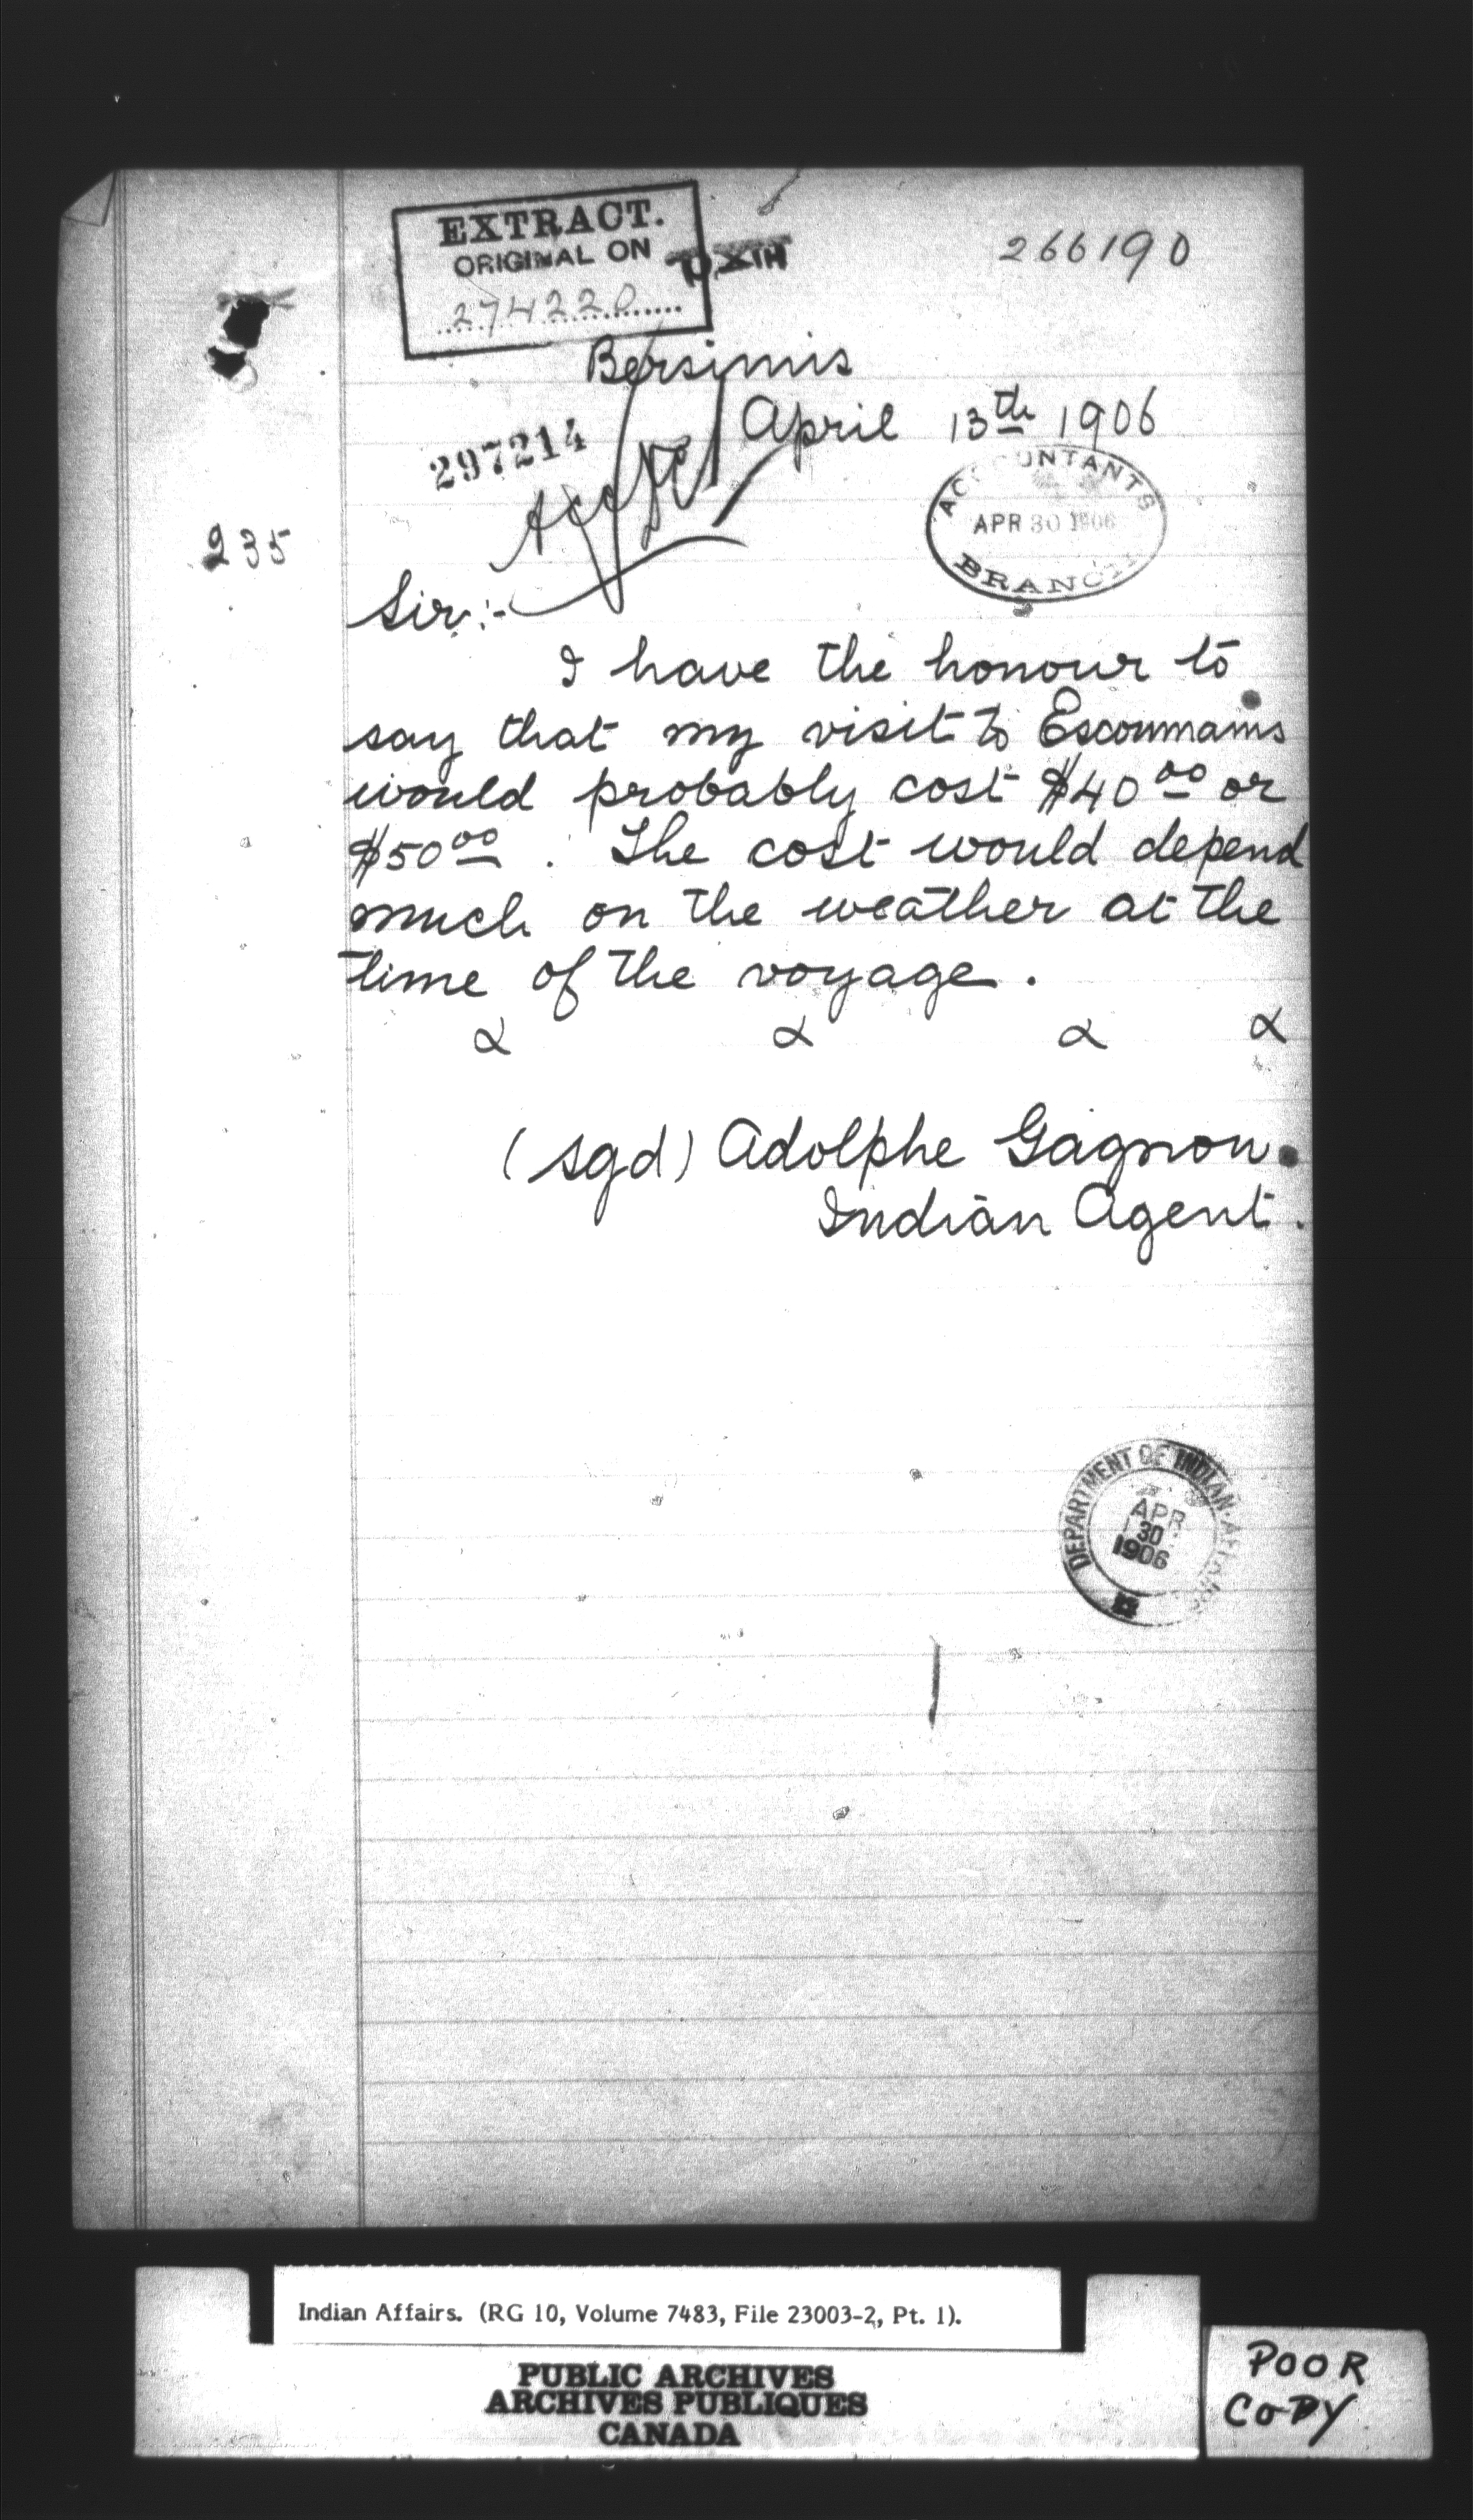 EXTRACT.
ORIGINAL ON
274220
266190
Bersimis
April 13th 1906
297214
ACCOUNTANTS
APR 30 1906
BRANCH
235
Sir:-
I have the honour to
say that my visit to Escoumains
would probably cost $40 00 or
$50 00. The cost would depend
much on the weather at the
time of the voyage.
(sgd) Adolphe Gagnon.
Indian Agent.
DEPARTMENT OF INDIAN AFFAIRS
APR
30
1906
Indian Affairs. (RG 10, Volume 7483, File 23003-2, Pt. 1).
PUBLIC ARCHIVES
ARCHIVES PUBLIQUES
CANADA
POOR
COPY